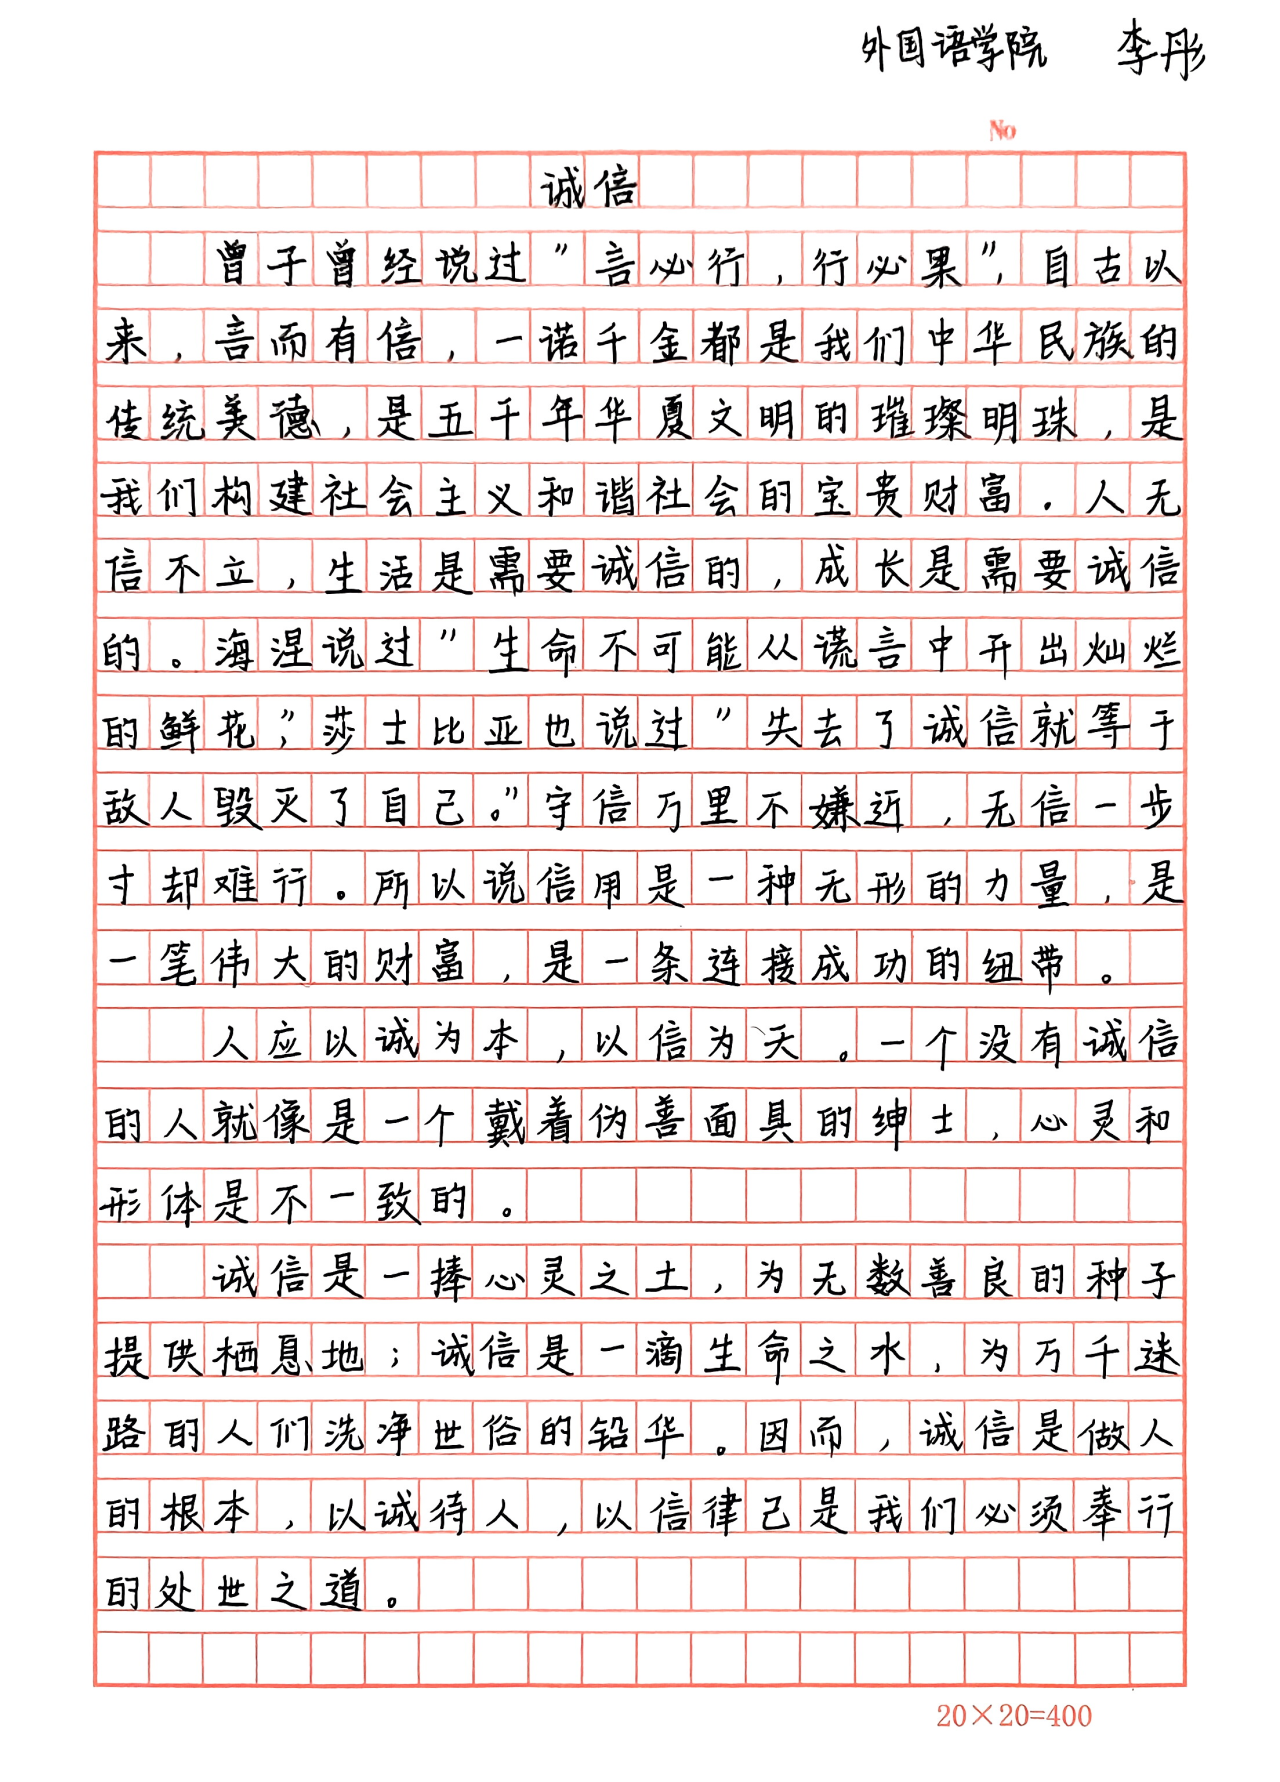 外国语学院 李彤
No
诚信
曾子曾经说过"言必行，行必果"，自古以
来，言而有信，一诺千金都是我们中华民族的
传统美德，是五千年华夏文明的璀璨明珠，是
我们构建社会主义和谐社会的宝贵财富．人无
信不立，生活是需要诚信的，成长是需要诚信
的。海涅说过"生命不可能从谎言中开出灿烂
的鲜花"，莎士比亚也说过"失去了诚信就等于
敌人毁灭了自己。"守信万里不嫌近，无信一步
寸却难行。所以说信用是一种无形的力量，是
一笔伟大的财富，是一条连接成功的纽带。
人应以诚为本，以信为天。一个没有诚信
的人就像是一个戴着伪善面具的绅士，心灵和
形体是不一致的。
诚信是一捧心灵之土，为无数善良的种子
提供栖息地；诚信是一滴生命之水，为万千迷
路的人们洗净世俗的铅华。因而，诚信是做人
的根本，以诚待人，以信律己是我们必须奉行
的处世之道。
20×20=400